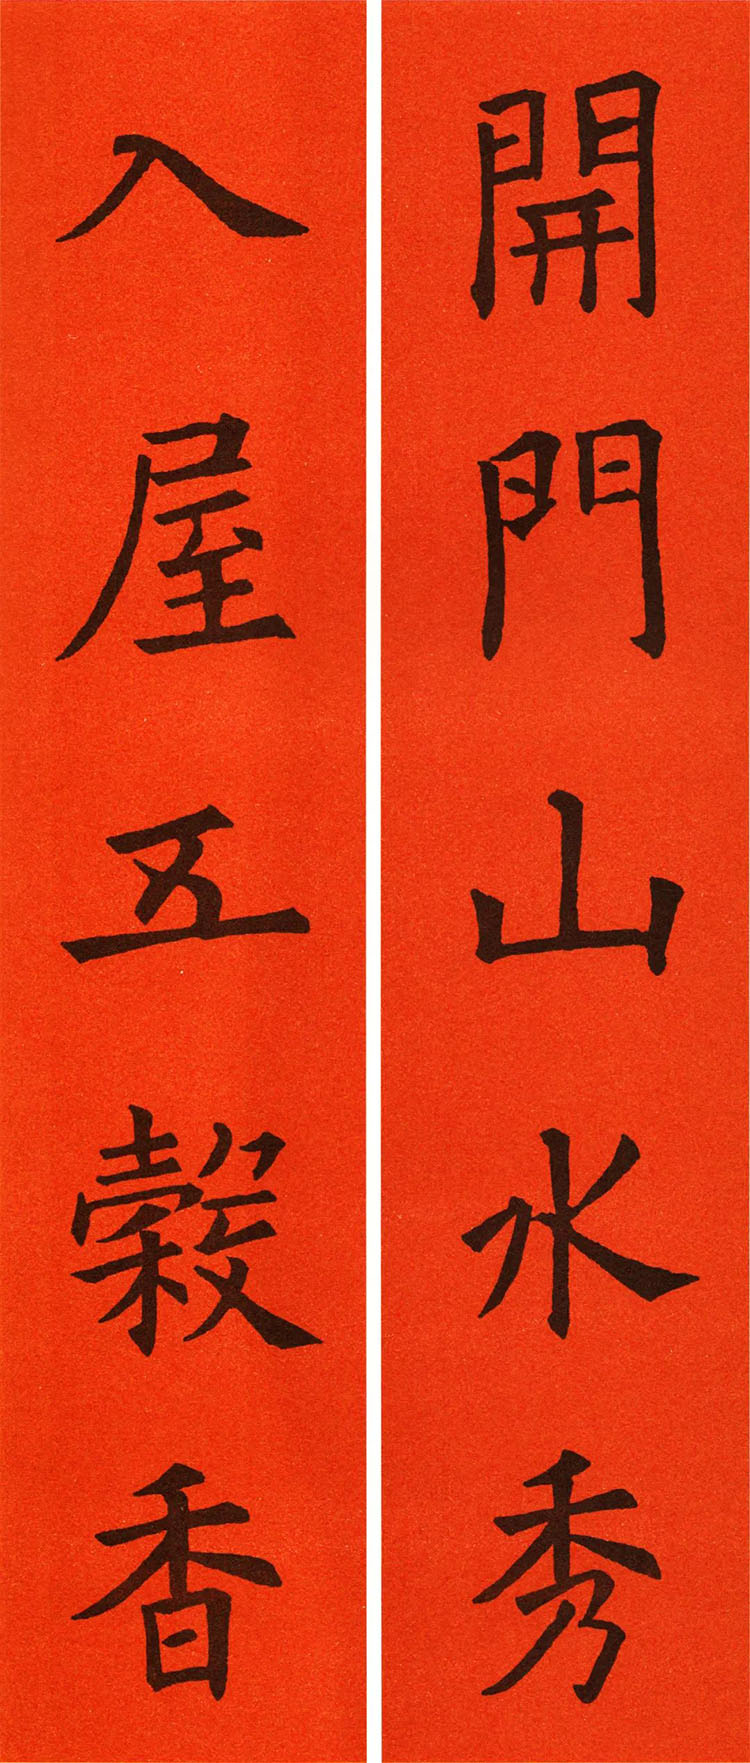 開門山水秀
入屋五穀香